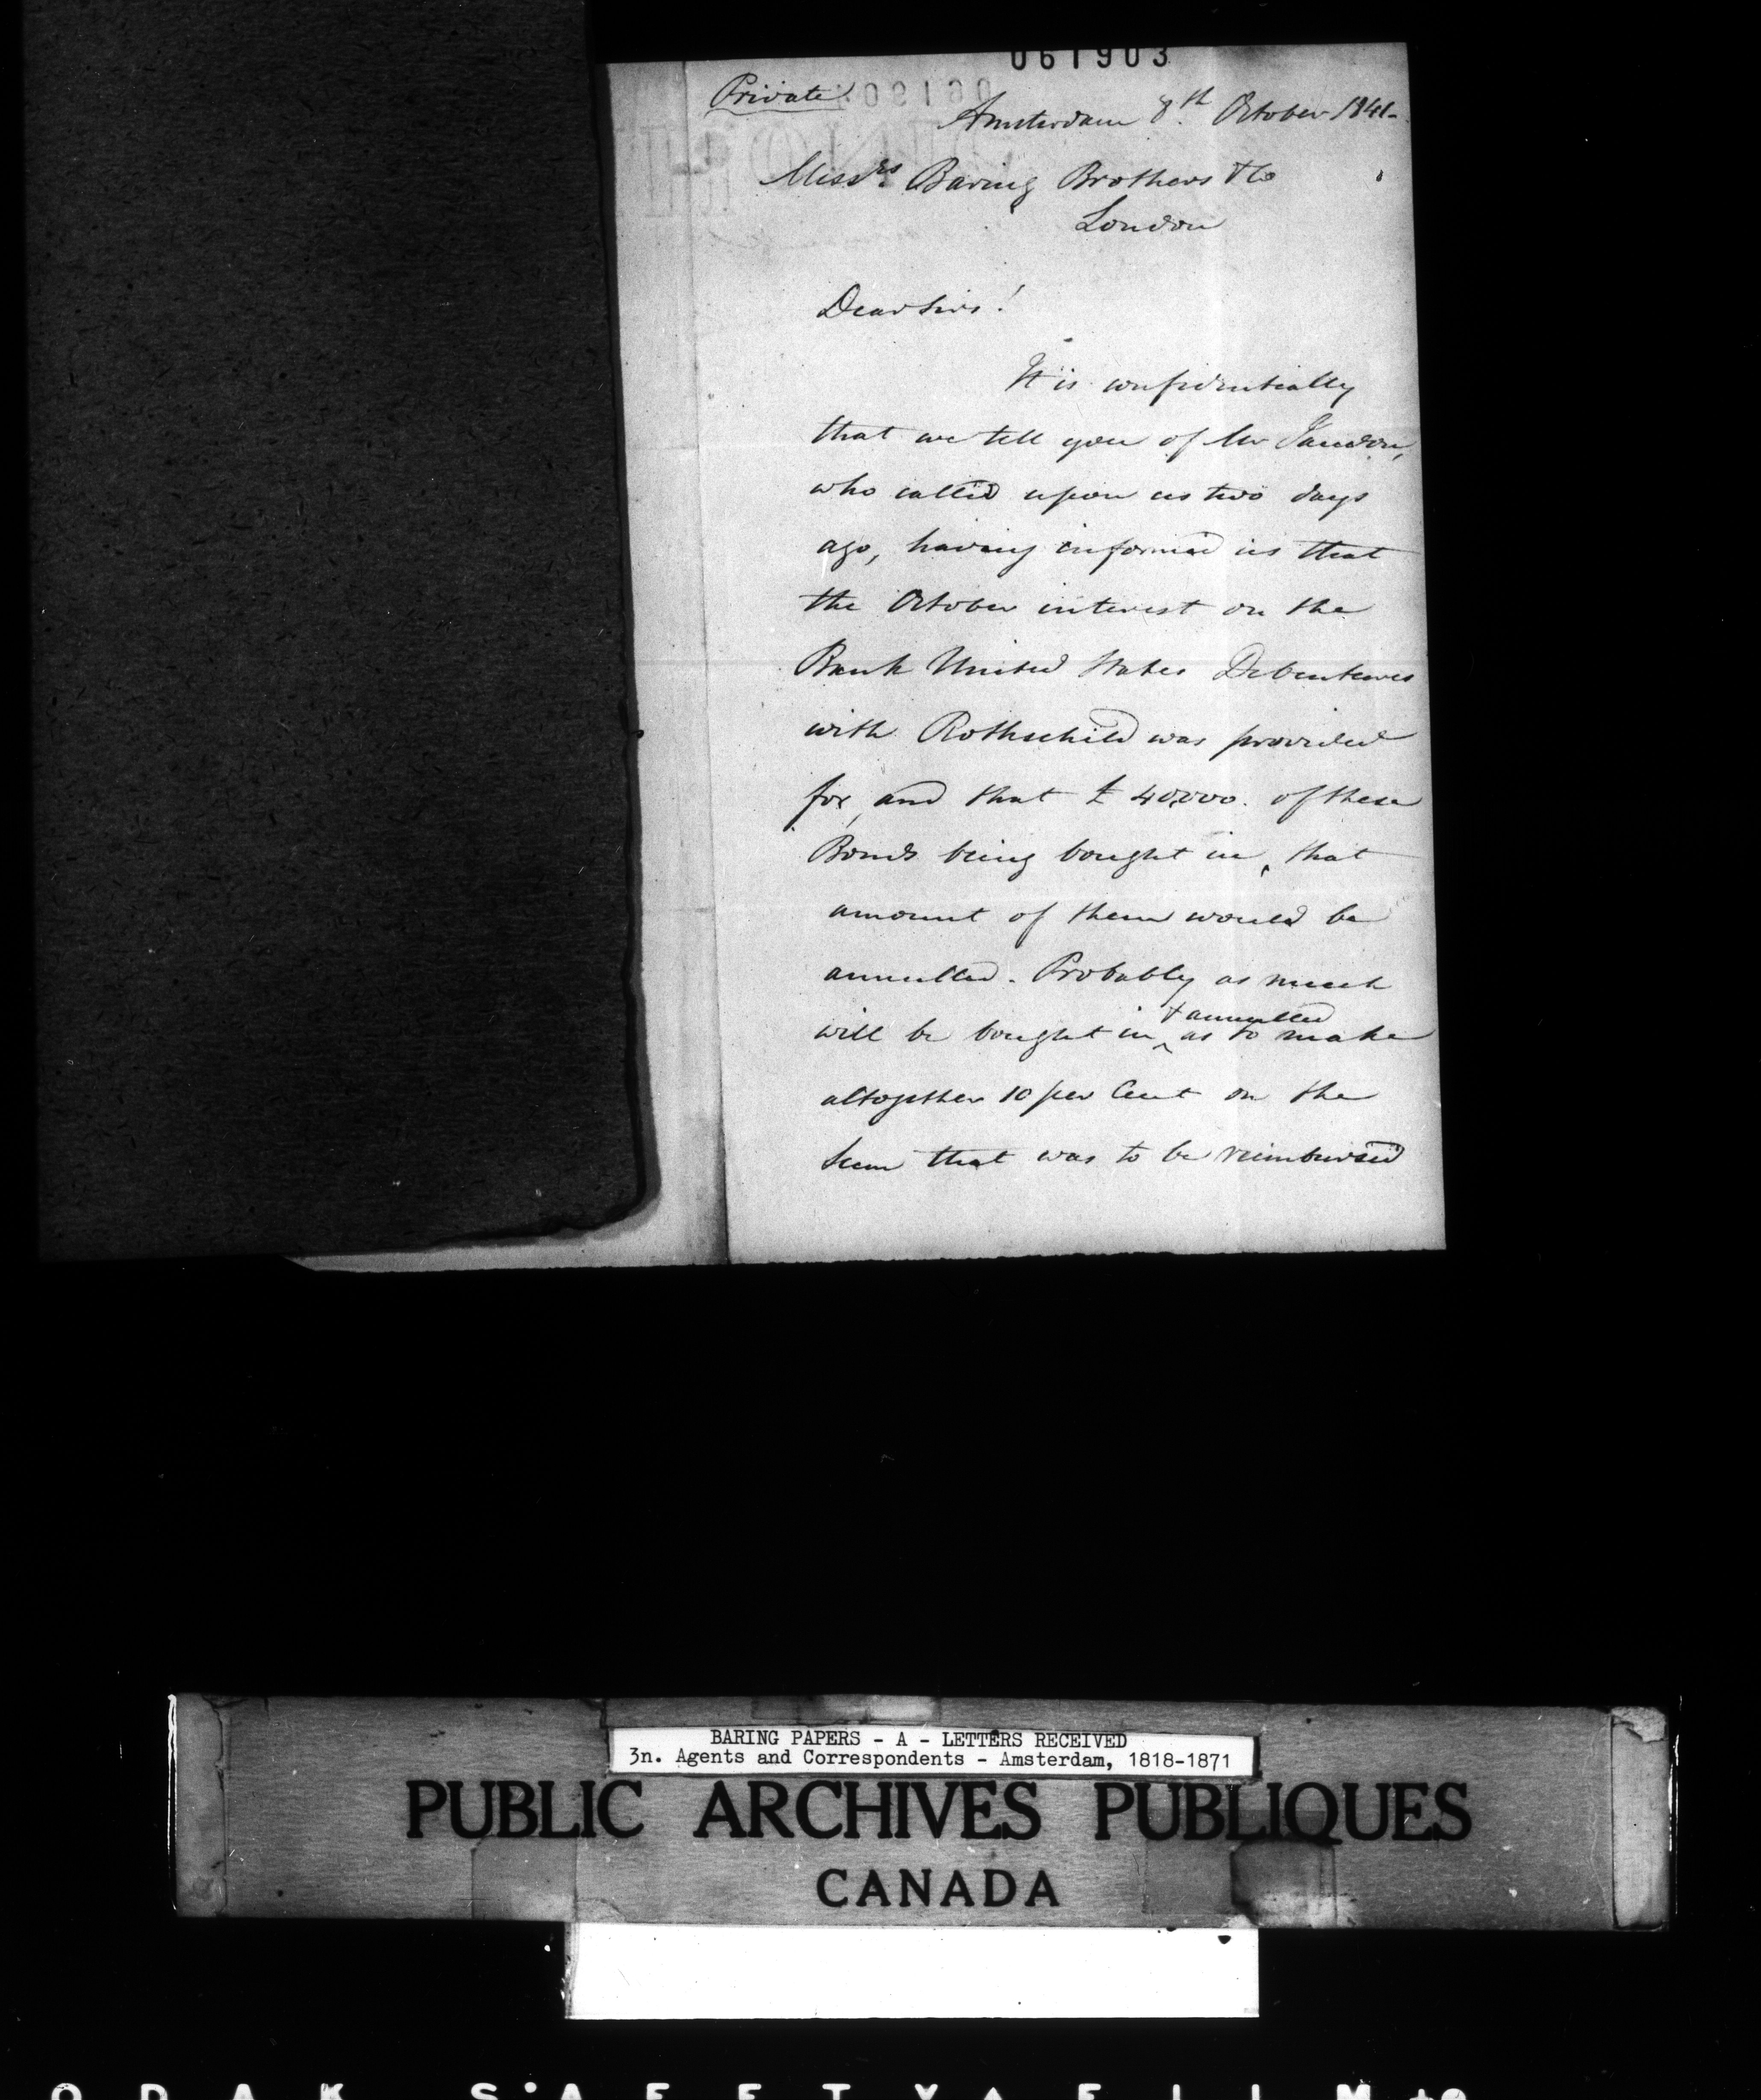 061903
Private
Amsterdam 8th October 1841-
Messrs Baring Brothers & Co
London
Dear Sirs!
It is confidentially
that we tell you of Mr Jaudon,
who called upon us two days
ago, having informed us that
the October interest on the
Bank United States Debentures
with Rothschild was provided
for, and that £ 40,000. of these
Bonds being bought in, that
amount of them would be
annulled. Probably as much
& annulled
will be bought in ^ as to make
altogether 10 per Cent on the
sum that was to be reimbursed
BARING PAPERS - A - LETTERS RECEIVED
3n. Agents and Correspondents - Amsterdam, 1818-1871
PUBLIC ARCHIVES PUBLIQUES
CANADA
ODAK SAFETY FILM